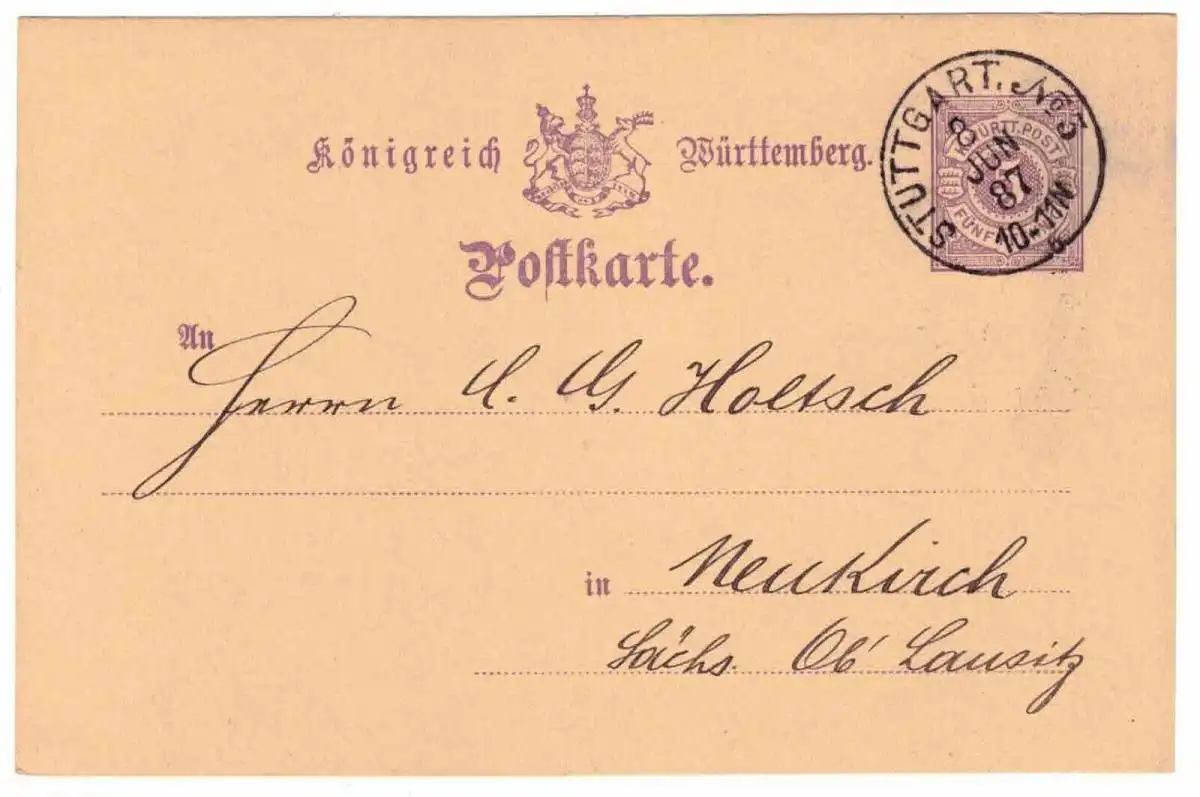 Königreich Württemberg.
STUTTGART. No 3
8 JUN 87
10-11N
WÜRTT. POST
FÜNF
Postkarte.
An Herrn C. G. Holtsch
in Neukirch
Sächs. Ob' Lausitz